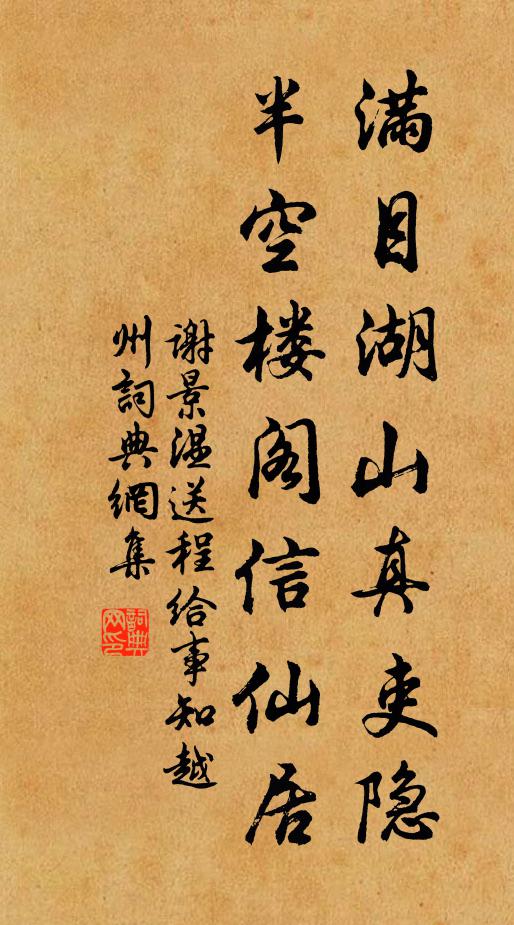 满目湖山真吏隐
半空楼阁信仙居
谢景温送程给事知越
州詞典網集
詞典
网印